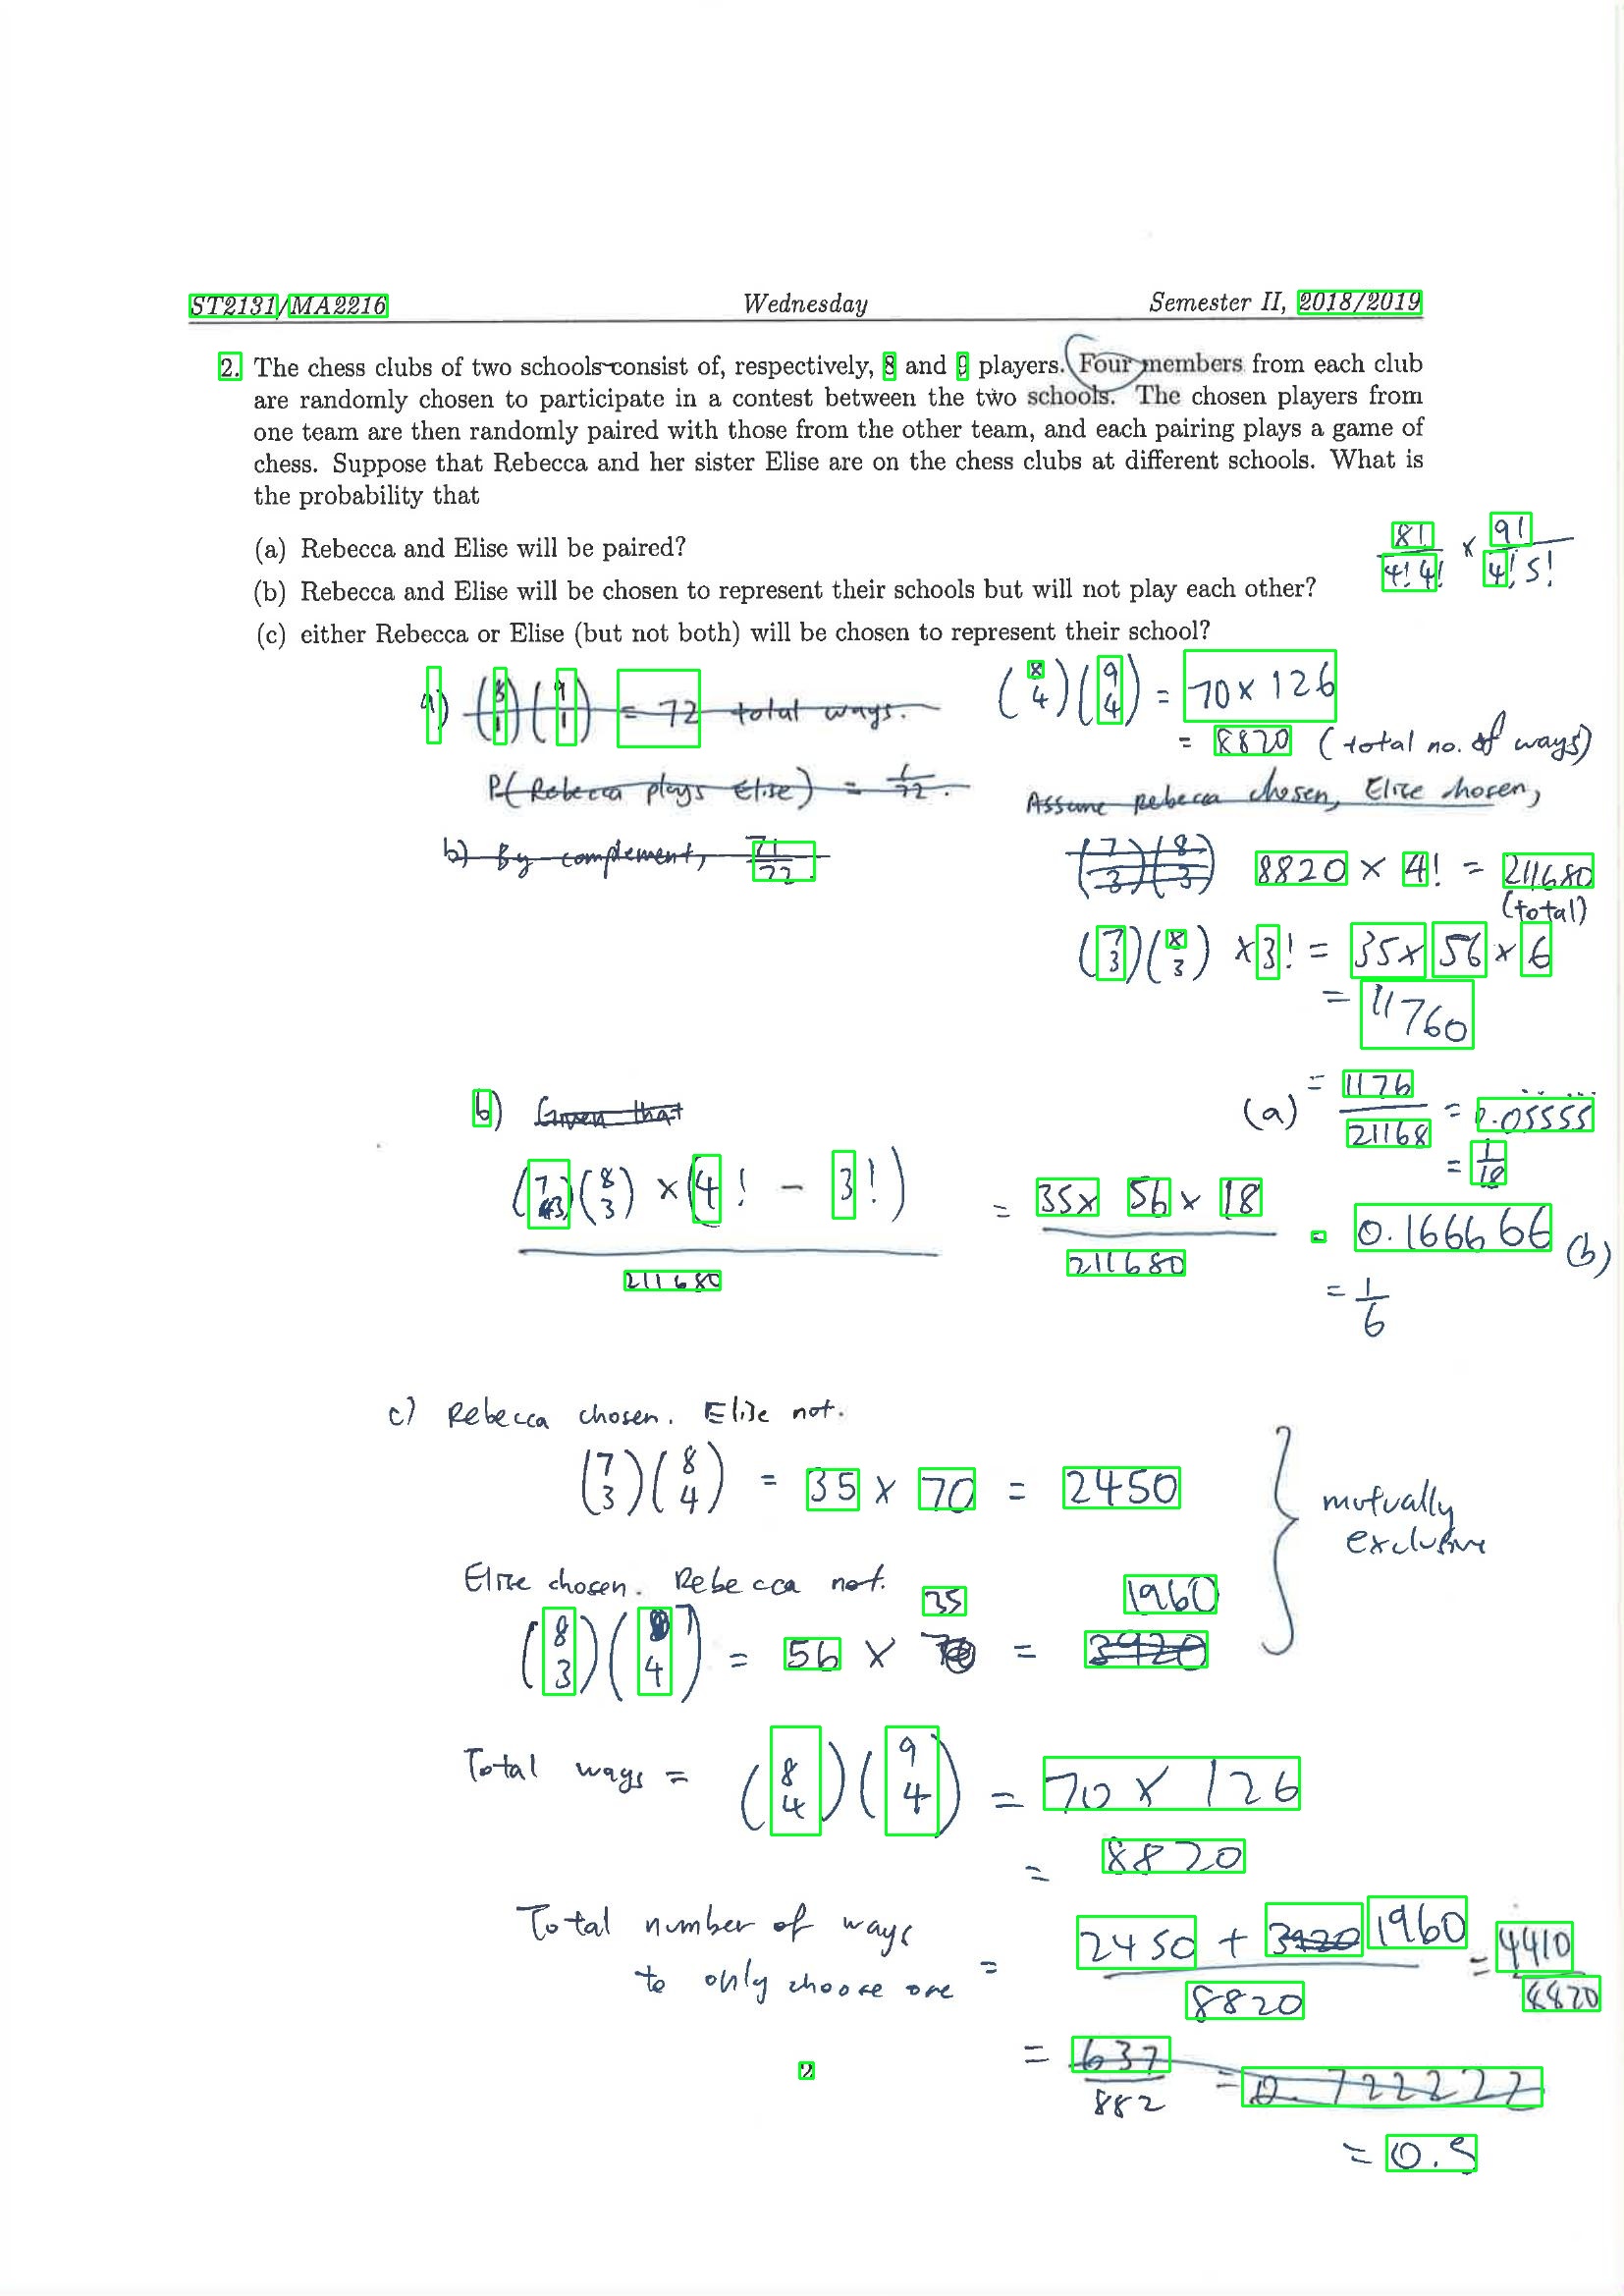 ST2131/MA2216 Wednesday Semester II, 2018/2019
2. The chess clubs of two schools consist of, respectively, 8 and 9 players. Four members from each club
are randomly chosen to participate in a contest between the two schools. The chosen players from
one team are then randomly paired with those from the other team, and each pairing plays a game of
chess. Suppose that Rebecca and her sister Elise are on the chess clubs at different schools. What is
the probability that
(a) Rebecca and Elise will be paired?
(b) Rebecca and Elise will be chosen to represent their schools but will not play each other?
(c) either Rebecca or Elise (but not both) will be chosen to represent their school?
8! / 4! 4! × 9! / 4! 5!
a) (8 1)(9 1) = 72 total ways.
P(Rebecca plays Elise) = 1/72.
b) By complement, 71/72.
(8 4)(9 4) = 70 × 126
= 8820 (total no. of ways)
Assume Rebecca chosen, Elise chosen,
(7 3)(8 3) 8820 × 4! = 211680
(total)
(7 3)(8 3) × 3! = 35 × 56 × 6
= 11760
(a) = 1176 / 21168 = 0.05555
= 1/18
b) Given that
(7 3)(8 3) × (4! - 3!) / 211680 = 35 × 56 × 18 / 211680 = 0.166666 (b)
= 1/6
c) Rebecca chosen. Elise not.
(7 3)(8 4) = 35 × 70 = 2450
mutually
exclusive
Elise chosen. Rebecca not.
(8 3)(7 4) = 56 × 35 = 3920 1960
Total ways = (8 4)(9 4) = 70 × 126
= 8820
Total number of ways
to only choose one = 2450 + 3920 1960 / 8820 = 4410 / 8820
= 637 / 882 = 0.722222
= 0.5
2